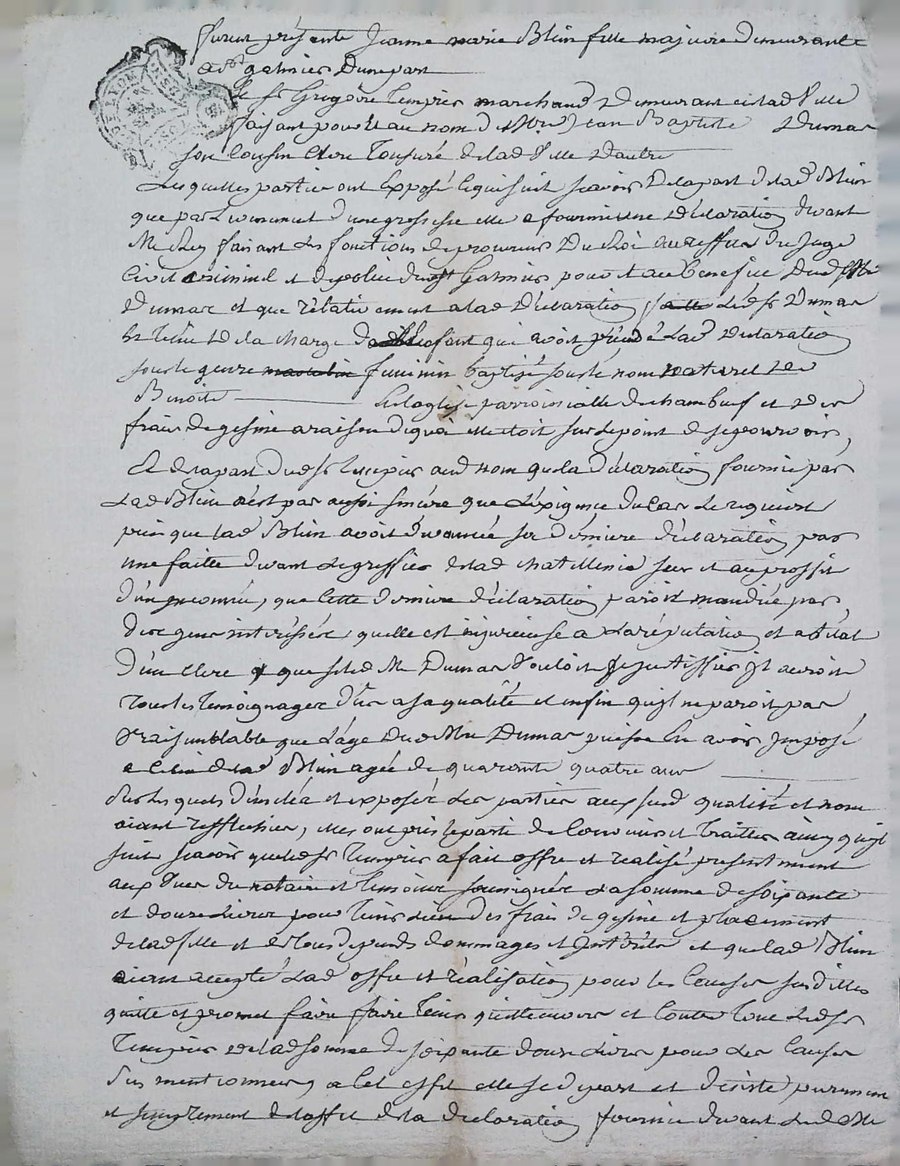 furent présente Jeanne marie Blin fille majeure demeurante
a st galmier d'une part
Le sr Grégoire marchand demeurant en lad ville
faisant pour et au nom de Mre Jean Baptiste Dumas
son cousin clerc tonsuré de lad ville d'autre
Lesquelles partie ont exposé ce qui suit scavoir de la part de lad Blin
que par d'une grossesse elle a fourni une déclaration devant
Me faisant les fonctions de procureur du Roi au du juge
civil criminel et de police de st Galmier pour et au bénéfice dud Mre
Dumas et que relativement a lad déclaration led sr Dumas
est tenu de la charge de enfant qui avoit lad déclaration
sous le genre masculin feminin baptisé sous le nom naturel de
Benoite en l'église parroissialle de chambeuf et des
frais de gesine a raison de quoi elle étoit sur le point de se pourvoir,
Et de la part dud sr aud nom que la déclaration fournie par
lad Blin n'est pas aussi sincère que l'exigence du cas le requiert
puisque lad Blin avoit devancée sa derniere déclaration par
une faitte devant le greffier de lad chatellenie sur et au proffit
d'un inconnu, que cette derniere déclaration paroit mandiée par
des gens intéréssés, quelle est injurieuse a la réputation et a l'état
d'un clerc que si led Me Dumas vouloit se justiffier il auroit
tous les témoignages dus a sa qualité et enfin qu'il ne paroit pas
vraisemblable que l'age dud Mre Dumas puisse en avoir imposé
a celui de lad Blin agée de quarente quatre ans
Sur lesquels et exposés les parties auxsusd qualités et noms
aiant refflechies, elles ont pris le parti de convenir et traitter ainsy qu'il
suit scavoir que led sr a fait offre et réalisé présentement
aux vues du notaire et témoins soussignés la somme de soixante
et douze livres pour tenir lieu des frais de gesine et placement
de lad fille et de tous dépends dommages et intérêts et que lad Blin
aiant accepté lad offre et réalisation pour les causes susdittes
quitte et promet faire tenir quitte envers et contre tous led sr
de lad somme de soixante douze livres pour les causes
sus mentionnées, a cet effet elle se départ et désiste purement
et simplement de l'effet de la déclaration fournie devant led Me